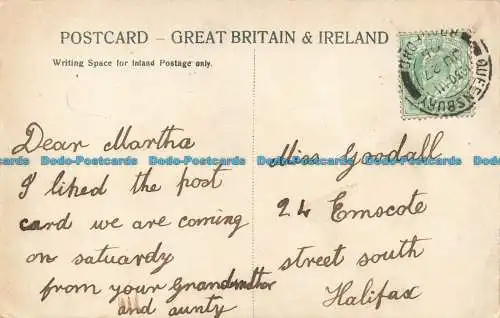 POSTCARD – GREAT BRITAIN & IRELAND
Writing Space for Inland Postage only.
QUEENSBURY
Dear Martha
I liked the post
card we are coming
on satuardy
from your Grandmother
and aunty
Miss Goodall
24 Emscote
street south
Halifax
Dodo-Postcards Dodo-Postcards Dodo-Postcards Dodo-Postcards Dodo-Postcards
Dodo-Postcards Dodo-Postcards Dodo-Postcards Dodo-Postcards Dodo-Postcards